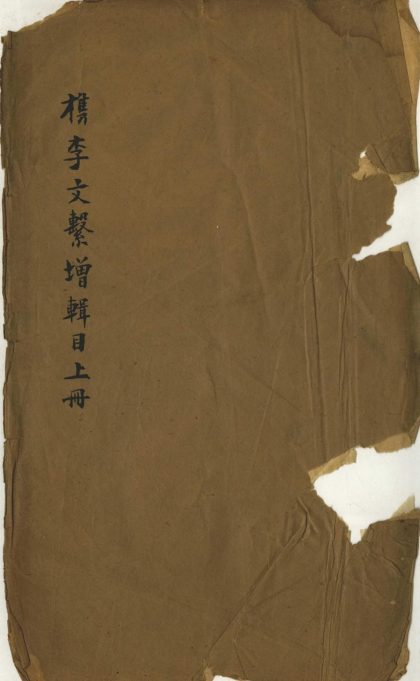 檇李文繫增輯目上冊